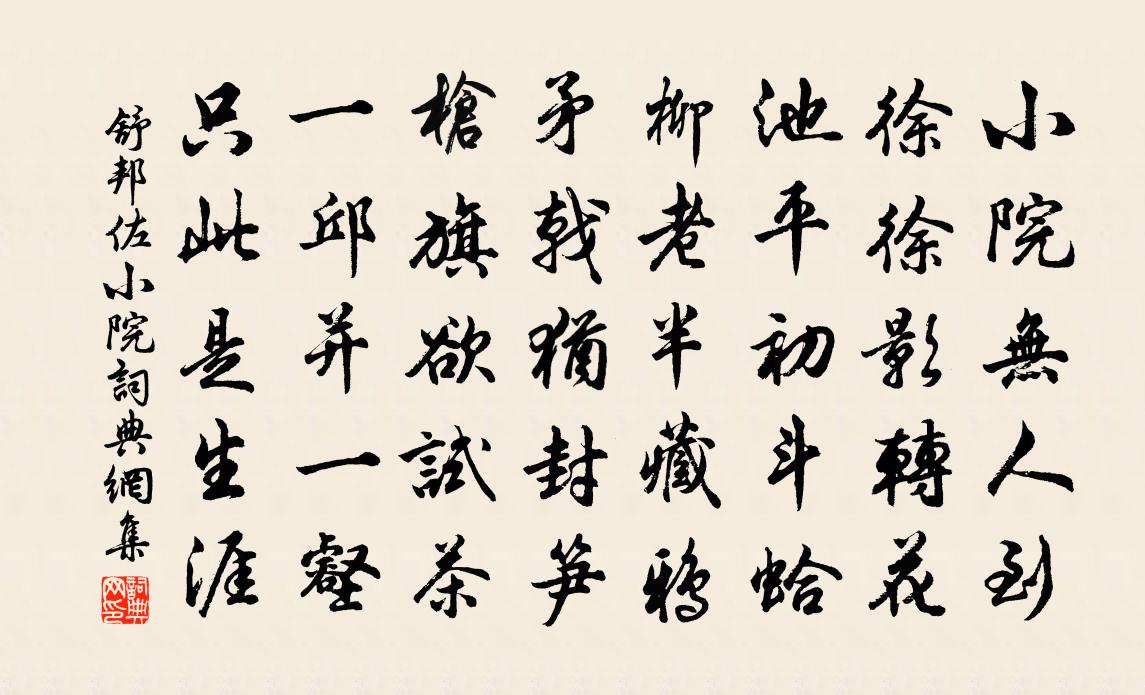 小院無人到
徐徐影轉花
池平初斗蛤
柳老半藏鴉
矛戟猶封笋
槍旗欲試茶
一邱并一壑
只此是生涯
舒邦佐小院詞典網集
詞典網印